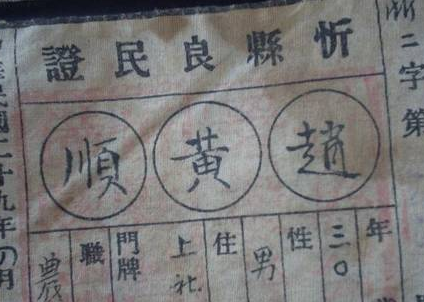 忻二字第
忻縣良民證
趙黃順
年三〇
性男
住上社
門牌
職農
民國二十九年
月